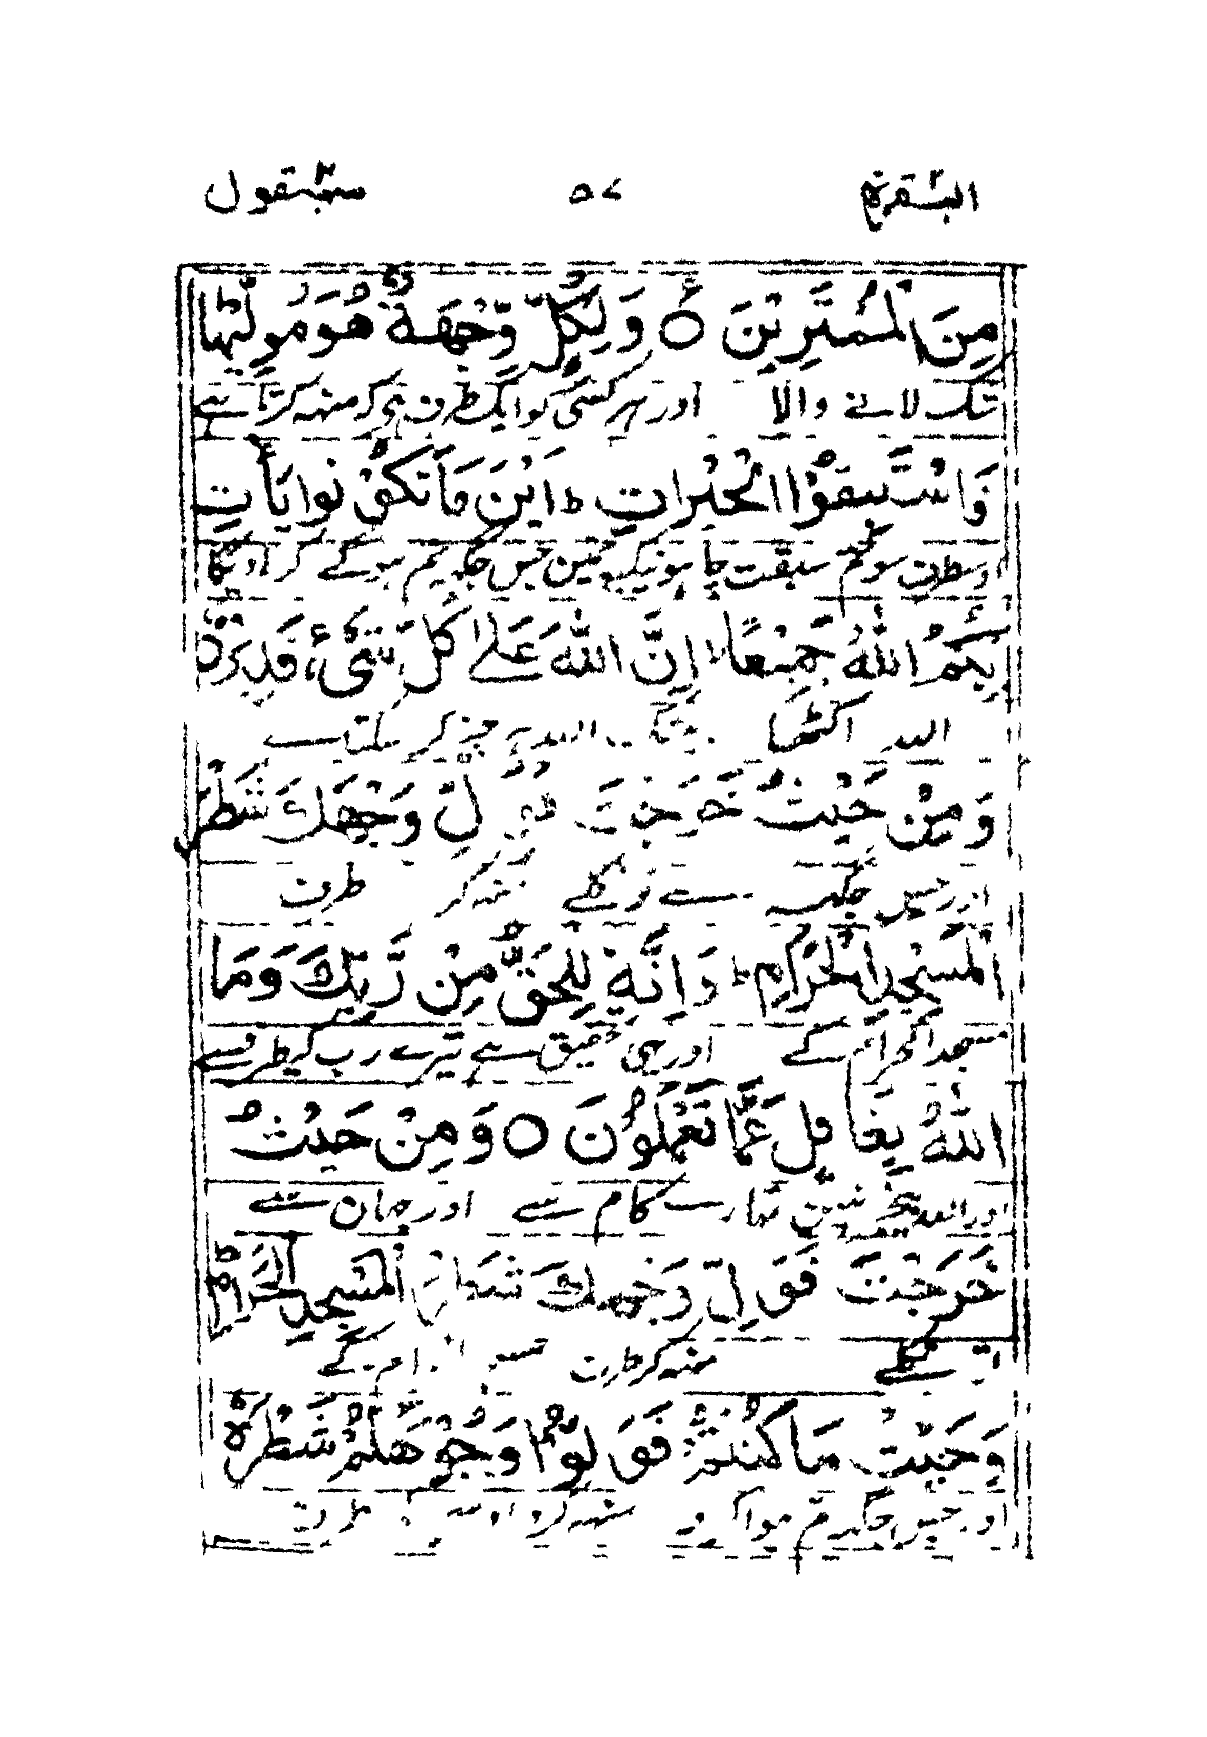 البقرة ٢ ٥٧ سيقول ٢
مِنَ الْمُمْتَرِيْنَ ○ وَلِكُلٍّ وِّجْهَةٌ هُوَ مُوَلِّيْهَا
شک لانے والا اور ہر کسی کو ایک طرف ہی کہ منہ کرتا ہے
فَاسْتَبِقُوْا الْخَيْرَاتِ ط اَيْنَ مَا تَكُوْنُوْا يَأْتِ
سو تم سبقت چاہو نیکیوں میں جس جگہ تم ہو گے کر لاویگا
بِكُمُ اللّٰهُ جَمِيْعًا ط اِنَّ اللّٰهَ عَلٰى كُلِّ شَيْءٍ قَدِيْرٌ ○
اللہ اکٹھا بیشک اللہ ہر چیز کر سکتا ہے
وَمِنْ حَيْثُ خَرَجْتَ فَوَلِّ وَجْهَكَ شَطْرَ
اور جس جگہ سے تو نکلے منہ کر طرف
الْمَسْجِدِ الْحَرَامِ ط وَاِنَّهٗ لَلْحَقُّ مِنْ رَّبِّكَ وَمَا
مسجد الحرام کے اور یہی تحقیق ہے تیرے رب کیطرف سے
اللّٰهُ بِغَافِلٍ عَمَّا تَعْمَلُوْنَ ○ وَمِنْ حَيْثُ
اور اللہ بیخبر نہیں تمہارے کام سے اور جہان سے
خَرَجْتَ فَوَلِّ وَجْهَكَ شَطْرَ الْمَسْجِدِ الْحَرَامِ ط
نکلے منہ کر طرف کے
وَحَيْثُ مَا كُنْتُمْ فَوَلُّوْا وُجُوْهَكُمْ شَطْرَهٗ
اور جس جگہ تم ہوا کرو منہ کرو طرف